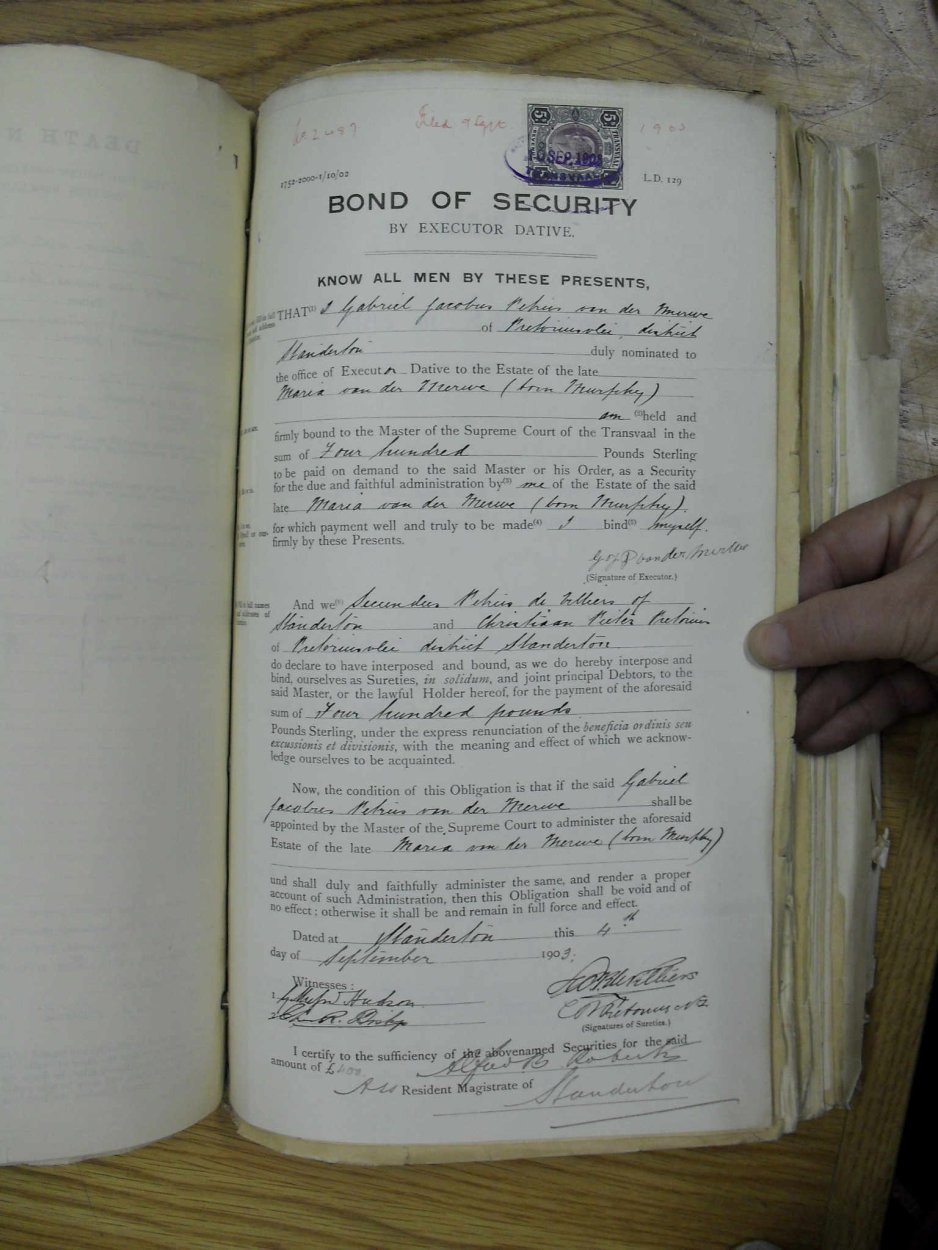 Filed 9 Sept. 1903
5s 5s
TRANSVAAL
SEP. 1903
TRANSVAAL
1752-2000-1/10/02
L.D. 129
BOND OF SECURITY
BY EXECUTOR DATIVE.
KNOW ALL MEN BY THESE PRESENTS,
THAT(1) I Gabriel Jacobus Petrus van der Merwe
of Pretoriusvlei, district
Standerton duly nominated to
the office of Executor Dative to the Estate of the late
Maria van der Merwe (born Murphy)
am (2)held and
firmly bound to the Master of the Supreme Court of the Transvaal in the
sum of Four hundred Pounds Sterling
to be paid on demand to the said Master or his Order, as a Security
for the due and faithful administration by(3) me of the Estate of the said
late Maria van der Merwe (born Murphy).
for which payment well and truly to be made(4) I bind(5) myself.
firmly by these Presents.
van der Merwe
(Signature of Executor.)
And we(6) Secundus Petrus de Villiers of
Standerton and Christiaan Pieter Pretorius
of Pretoriusvlei district Standerton
do declare to have interposed and bound, as we do hereby interpose and
bind, ourselves as Sureties, in solidum, and joint principal Debtors, to the
said Master, or the lawful Holder hereof, for the payment of the aforesaid
sum of Four hundred pounds
Pounds Sterling, under the express renunciation of the beneficia ordinis seu
excussionis et divisionis, with the meaning and effect of which we acknow-
ledge ourselves to be acquainted.
Now, the condition of this Obligation is that if the said Gabriel
Jacobus Petrus van der Merwe shall be
appointed by the Master of the Supreme Court to administer the aforesaid
Estate of the late Maria van der Merwe (born Murphy)
und shall duly and faithfully administer the same, and render a proper
account of such Administration, then this Obligation shall be void and of
no effect; otherwise it shall be and remain in full force and effect.
Dated at Standerton this 4th
day of September 1903.
Witnesses:
1. Hudson
2.
de Villiers
Pretorius
(Signatures of Sureties.)
I certify to the sufficiency of the abovenamed Securities for the said
amount of £400 Alfred B Roberts
Resident Magistrate of Standerton